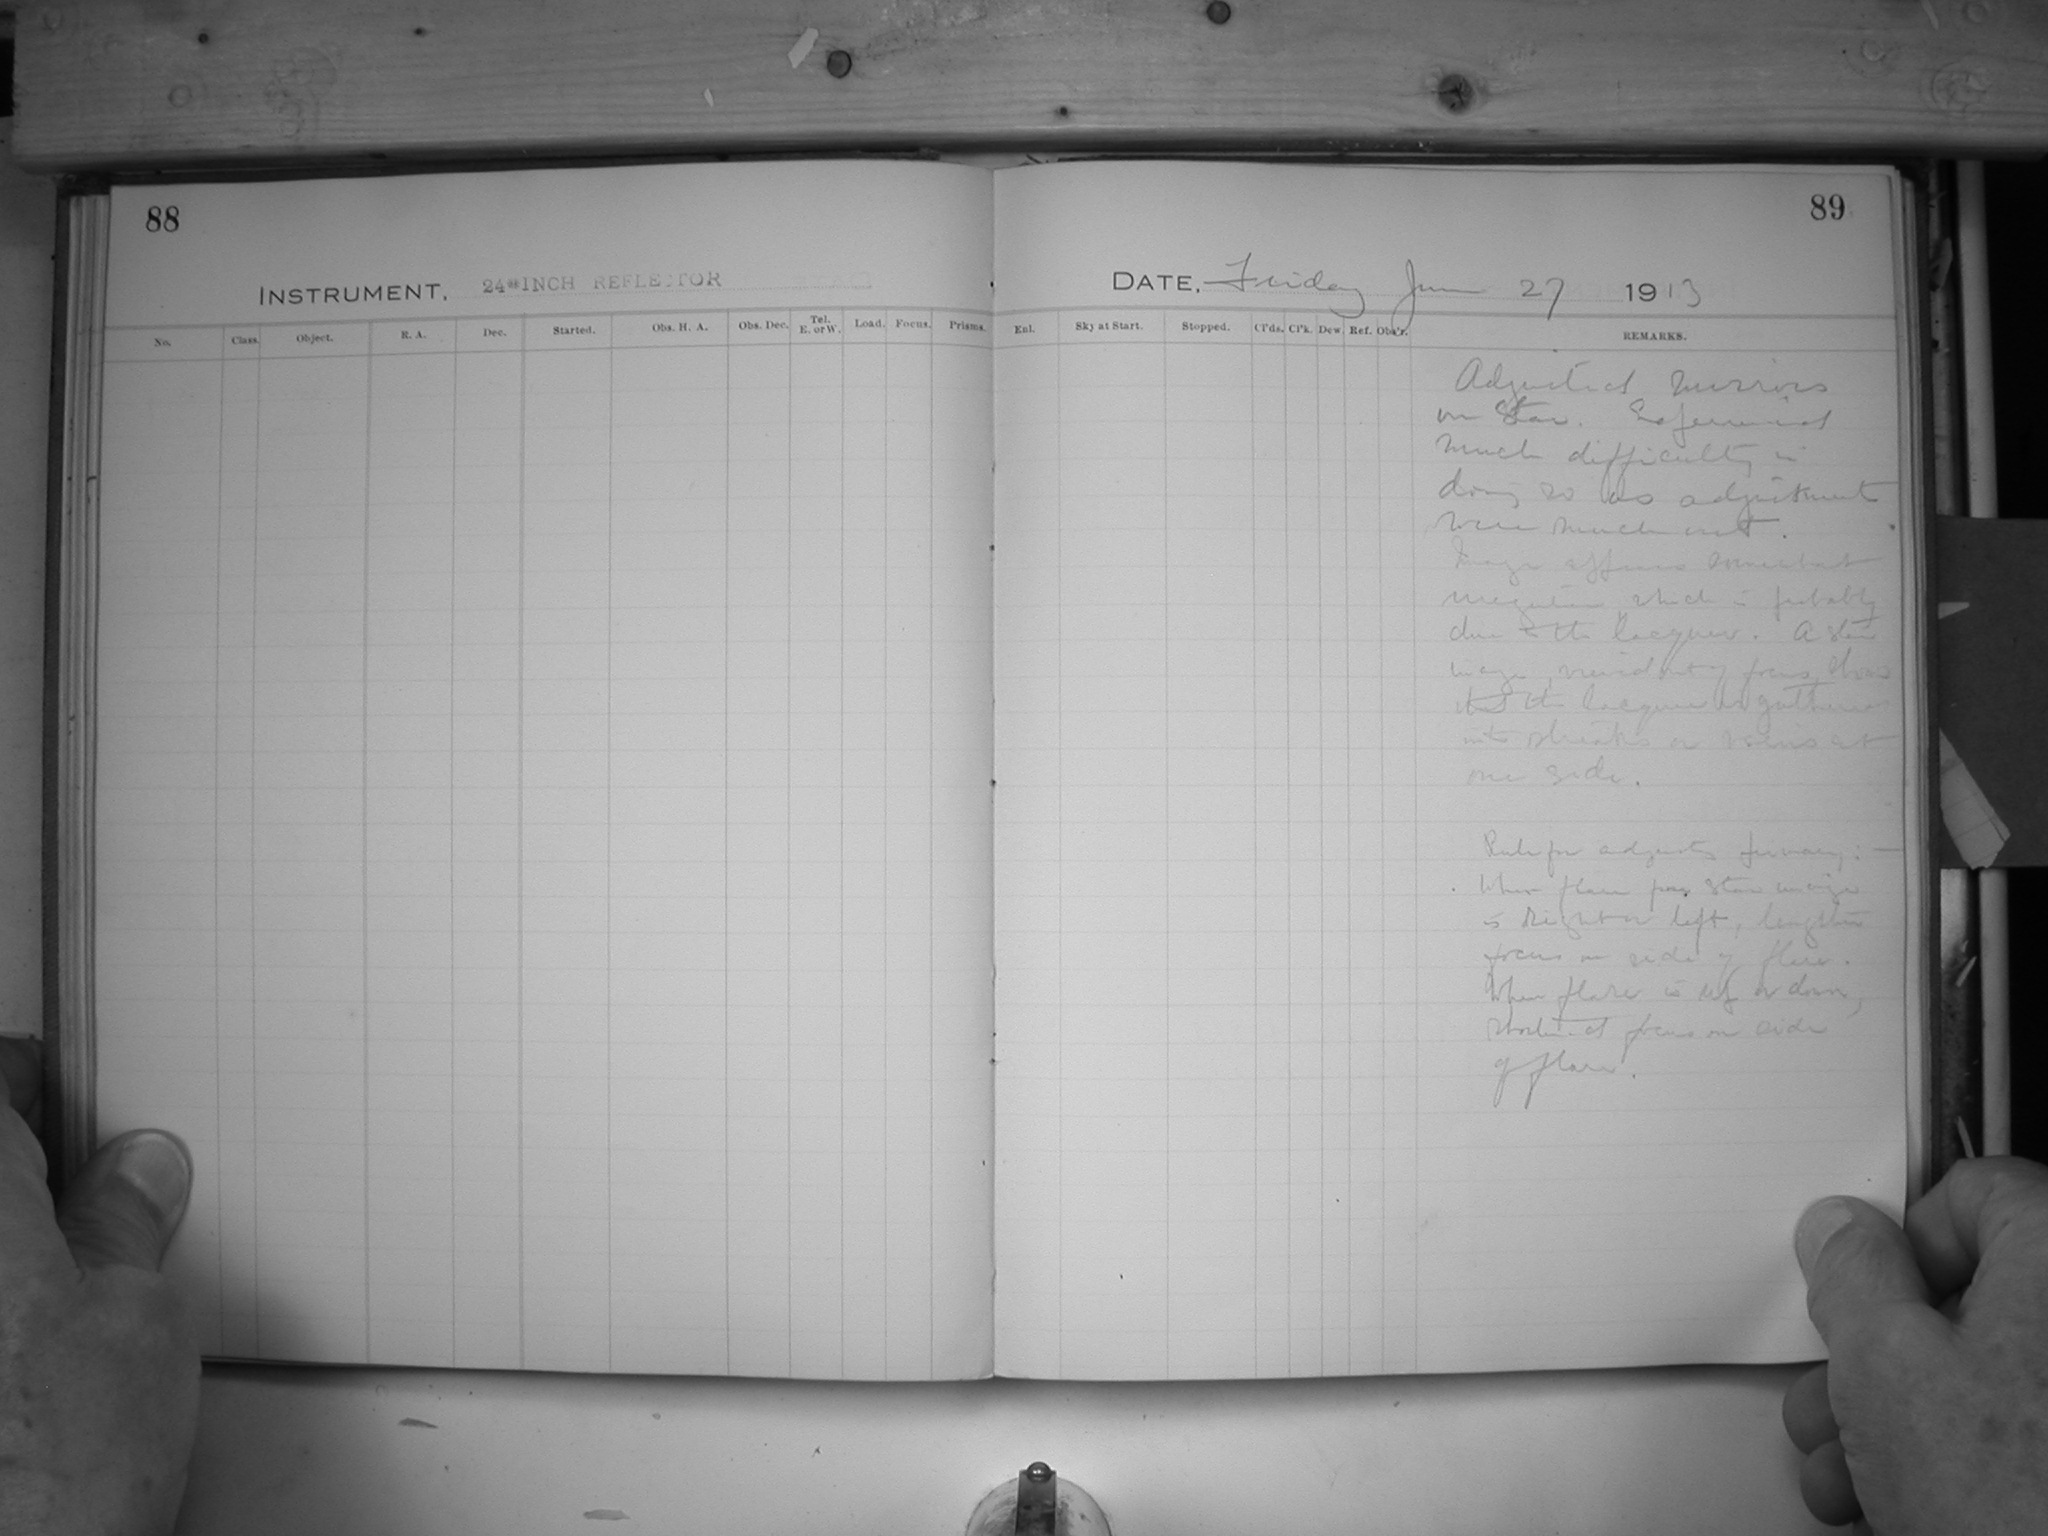 88
89
INSTRUMENT, 24"INCH REFLECTOR
DATE, Friday June 27 1913
No. Class. Object. R. A. Dec. Started. Obs. H. A. Obs. Dec. Tel. E. or W. Load. Focus. Prisms. Enl. Sky at Start. Stopped. Cl'ds. Cl'k. Dew. Ref. Obs'r. REMARKS.
Adjusted mirrors
on Star. Experienced
much difficulty in
doing so as adjustment
were much out.
Image appears somewhat
which is probably
due to the lacquer. A star
image, viewed out of focus, shows
that the lacquer is gathered
into streaks or veins at
one side.
Rule for adjusting primary: —
When flare from star image
is Right or left, lengthen
focus on side of flare.
When flare is up or down,
focus on side
of flare.